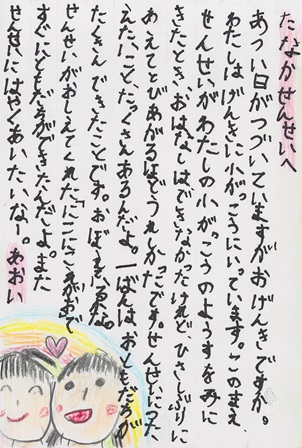 たなかせんせいへ
あつい日がつづいていますがおげんきですか。
わたしはげんきに小がっこうにいっています。このまえ、
せんせいがわたしの小がっこうのようすをみに
きたとき、おはなしはできなかったけれど、ひさしぶりに
あえてとびあがるほどうれしかったです。せんせいにつた
えたいこと、たくさんあるんだよ。一ばんは、おともだちが
たくさんできたことです。
せんせいがおしえてくれた
すぐにともだちができたんだよ。また
せんせいにはやくあいたいなー。あおい